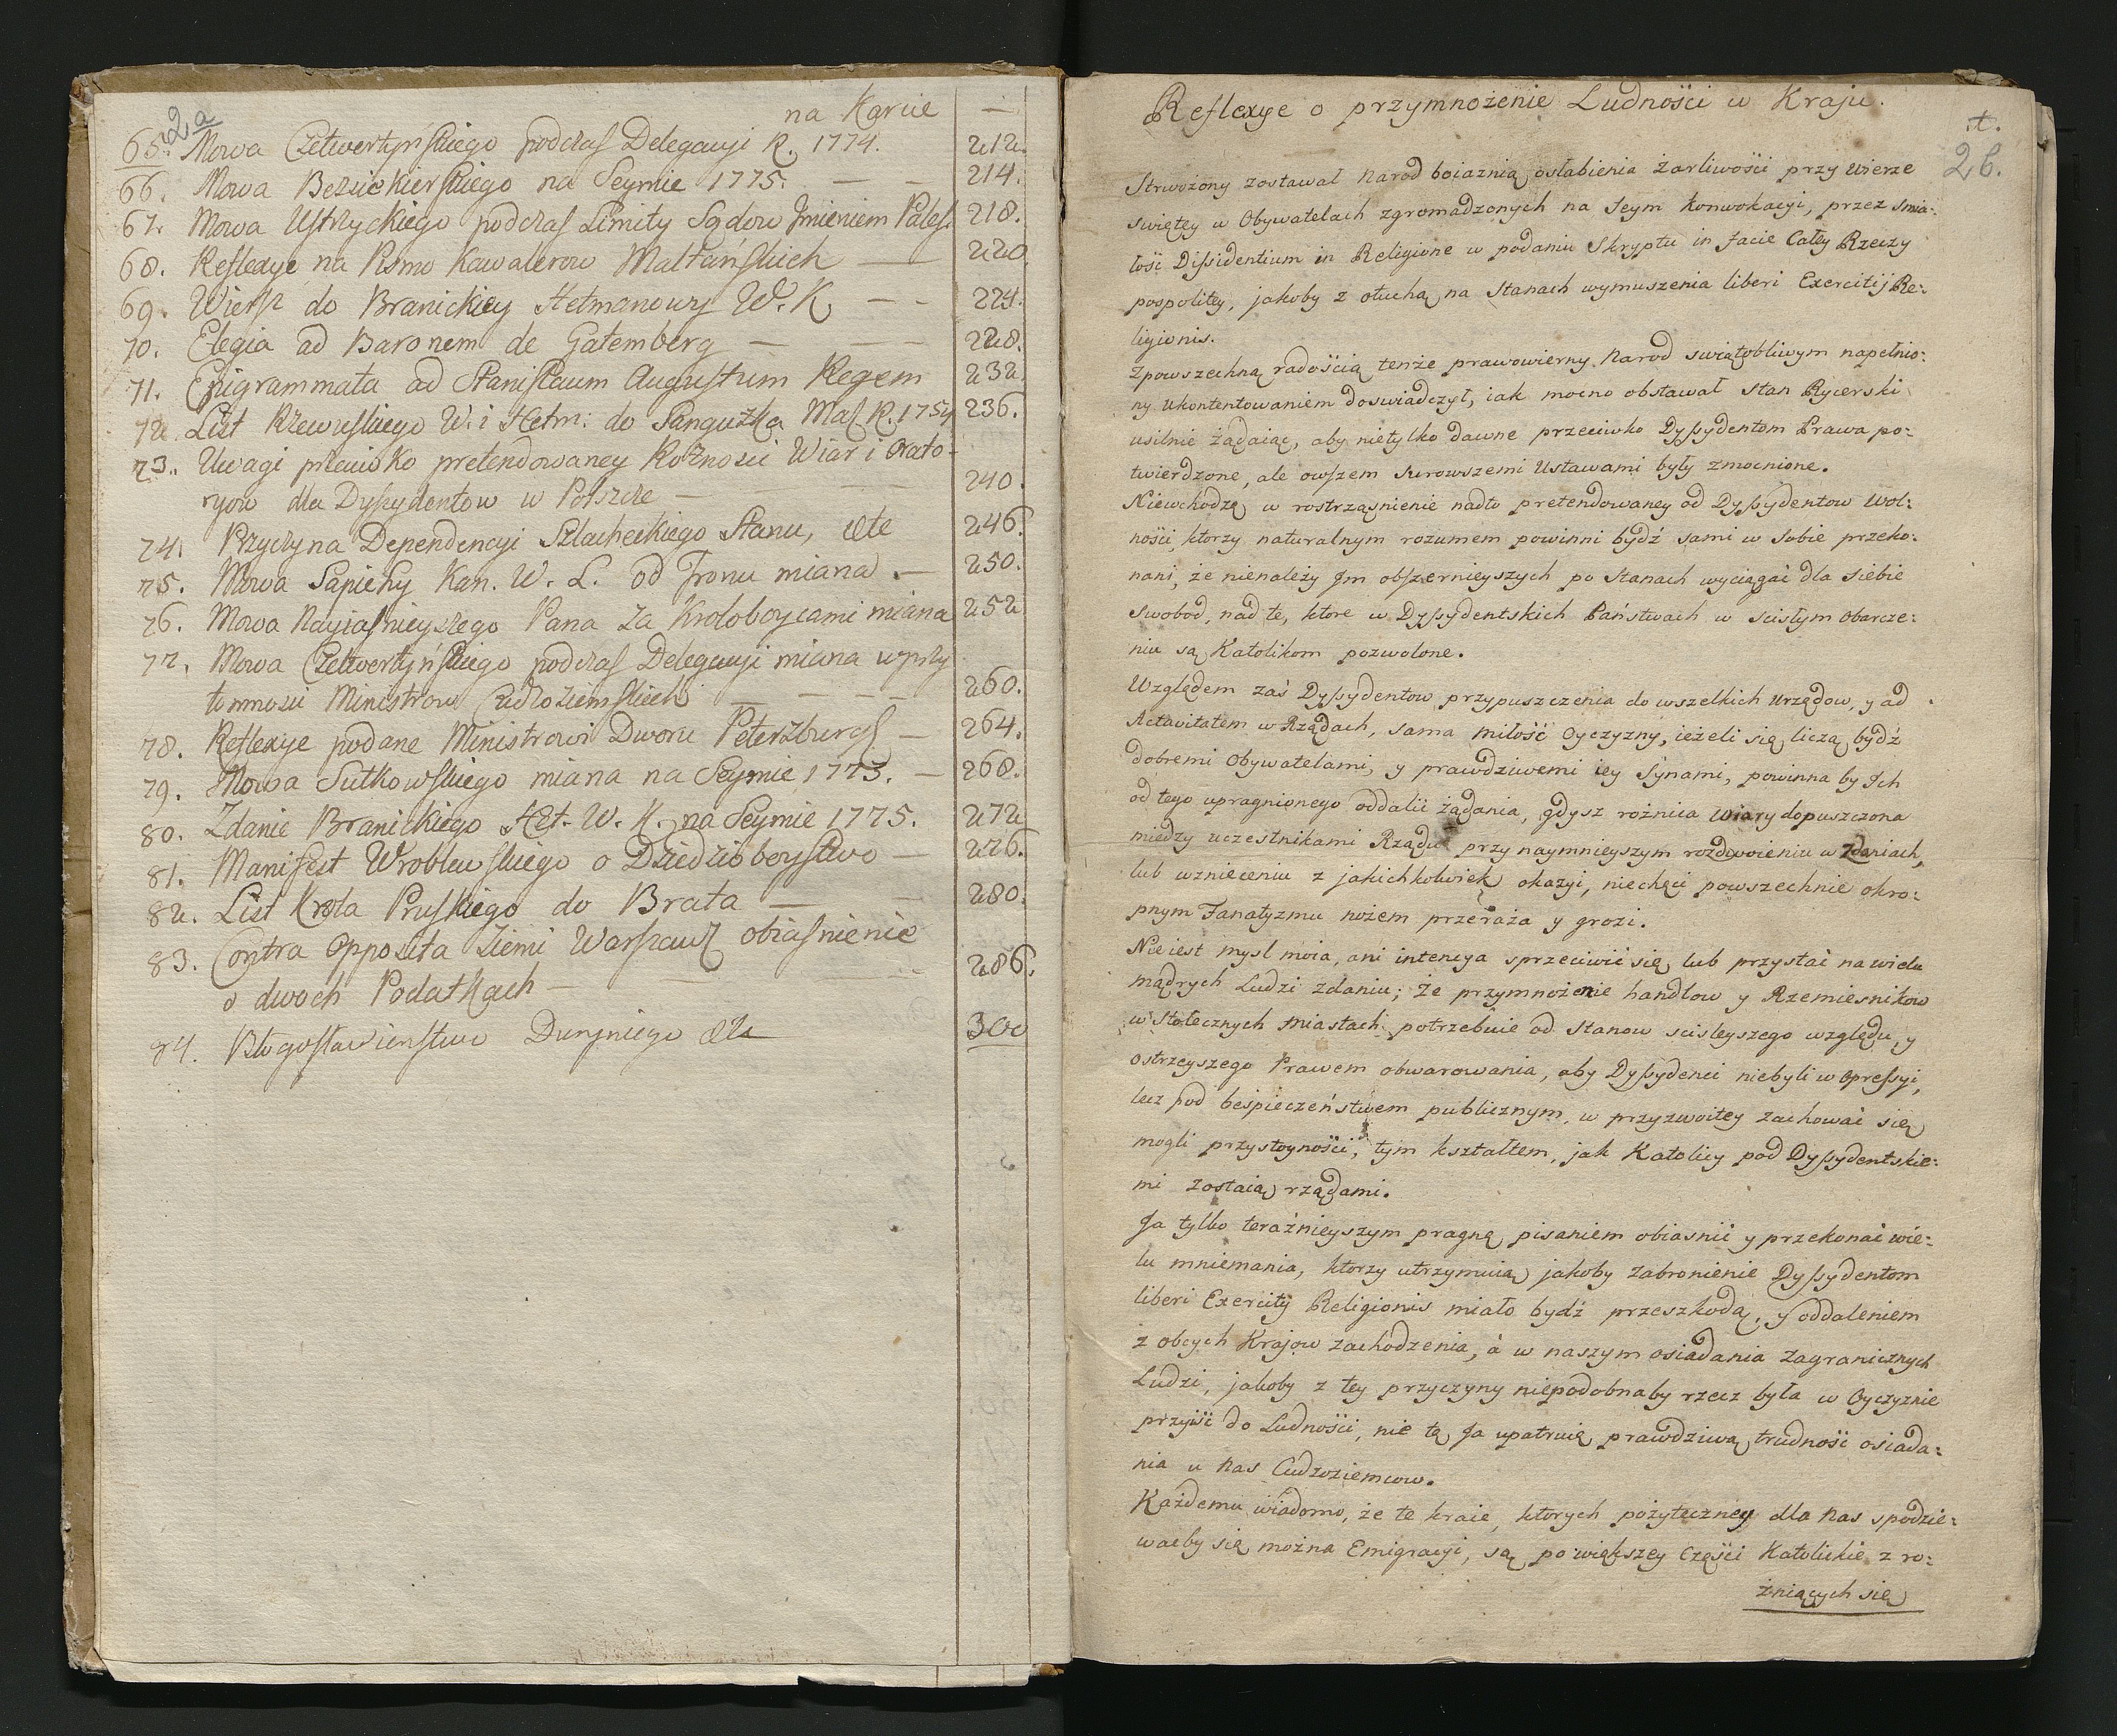 2a
na Karcie —
65. Mowa Czetwertyńskiego podczas Delegacyi R. 1774. 212.
66. Mowa Bezuckierskiego na Seymie 1775. — — 214.
67. Mowa Ustrzyckiego podczas Limity Sądow Jmieniem Pales. 218.
68. Reflexye na Pismo Kawalerow Maltańskich — 220
69. Wiersz do Branickiey Hetmanowy W. K. — - 224.
70. Elegia ad Baronem de Gatemberg — — 228.
71. Epigrammata ad Stanislaum Augustum Regem 232.
72. List Rzewuskiego W. i Hetm: do Sanguszka Mas. R. 1754 236.
73. Uwagi przeciwko pretendowaney Rożnosci Wiar i Orato-
ryow dla Dyssydentow w Polszcze — — 240.
74. Przyczyna Dependencyi Szlacheckiego Stanu, etc 246.
75. Mowa Sapiehy Kan. W. L. od Tronu miana. — 250.
76. Mowa Nayiasnieyszego Pana za Krolobojcami miana 252
77. Mowa Czetwertyńskiego podczas Delegacyi miana w przy
tomnosci Ministrow Cudzoziemskich — — 260.
78. Reflexye podane Ministrowi Dworu Peterzburs. — 264.
79. Mowa Sulkowskiego miana na Seymie 1773. — 268.
80. Zdanie Branickiego Het. W. K. na Seymie 1775. 272
81. Manifest Wroblewskiego o Dziedzioboystwo — 276.
82. List Krola Pruskiego do Brata — — 280.
83. Contra Opposita Ziemi Warszaws obiasnienie
o dwoch Podatkach — — 286.
84. Błogosławienstwo Duryniego etc 300
Reflexye o przymnożenie Ludności w Kraju.
1.
2b.
Strwożony zostawał Narod boiaznią osłabienia żarliwości przy wierze
swiętey w Obywatelach zgromadzonych na Seym konwokacyi, przez smia:
łość Dissidentium in Religione w podaniu Skryptu in facie Całey Rzeczy
pospolitey, jakoby z otuchą na Stanach wymuszenia liberi Exercitij Re:
ligionis.
Zpowszechną radością tenże prawowierny Narod swiątobliwym napełnio:
ny ukontentowaniem doswiadczył, iak mocno obstawał stan Rycerski
usilnie żądaiąc, aby nietylko dawne przeciwko Dyssydentom Prawa po:
twierdzone, ale owszem surowszemi Ustawami były zmocnione.
Niewchodzę w rostrząsnienie nadto pretendowaney od Dyssydentow wol:
ności, ktorzy naturalnym rozumem powinni bydź sami w sobie przeko:
nani, że nienależy Jm obszernieyszych po Stanach wyciągać dla siebie
swobod, nad te, ktore w Dyssydentskich Państwach w scisłym obarcze:
niu są Katolikom pozwolone.
Względem zaś Dyssydentow przypuszczenia do wszelkich urzędow, y ad
Activitatem w Rządach, sama miłość Oyczyzny, ieżeli się liczą bydź
dobremi Obywatelami, y prawdziwemi iey Synami, powinna by Ich
od tego upragnionego oddalić żądania, gdysz rożnica wiary dopuszczona
miedzy uczestnikami Rządu przy naymnieyszym rozdwoieniu w zdaniach,
lub wznieceniu z jakichkolwiek okazyi, niechęci powszechnie okro:
pnym Fanatyzmu nożem przeraża y grozi.
Nieiest mysl moia, ani intencya sprzeciwić się, lub przystać na wielu
mądrych Ludzi zdaniu; że przymnożenie handlow y Rzemiesnikow
w stołecznych miastach potrzebuie od Stanow scisleyszego względu, y
ostrzeyszego Prawem obwarowania, aby Dyssydenci niebyli w Opressyi,
lecz pod bespieczeństwem publicznym, w przyzwoitey zachować się
mogli przystoyności, tym kształtem, jak Katolicy pod Dyssydentskie:
mi zostaią rządami.
Ja tylko terażnieyszym pragnę pisaniem obiasnić y przekonać wie:
lu mniemania, ktorzy utrzymuią jakoby zabronienie Dyssydentom
liberi Exercitij Religionis miało bydź przeszkodą, y oddaleniem
z obcych Krajow zachodzenia, á w naszym osiadania Zagranicznych
Ludzi, jakoby z tey przyczyny niepodobnaby rzecz była w Oyczyznie
przyiść do Ludności, nie tę Ja upatruię prawdziwą trudność osiada:
nia u Nas Cudzoziemcow.
Każdemu wiadomo, że te kraie, ktorych pożyteczney dla Nas spodzie:
wać by się można Emigracyi, są po większey Części Katolickie z ro:
żniących się